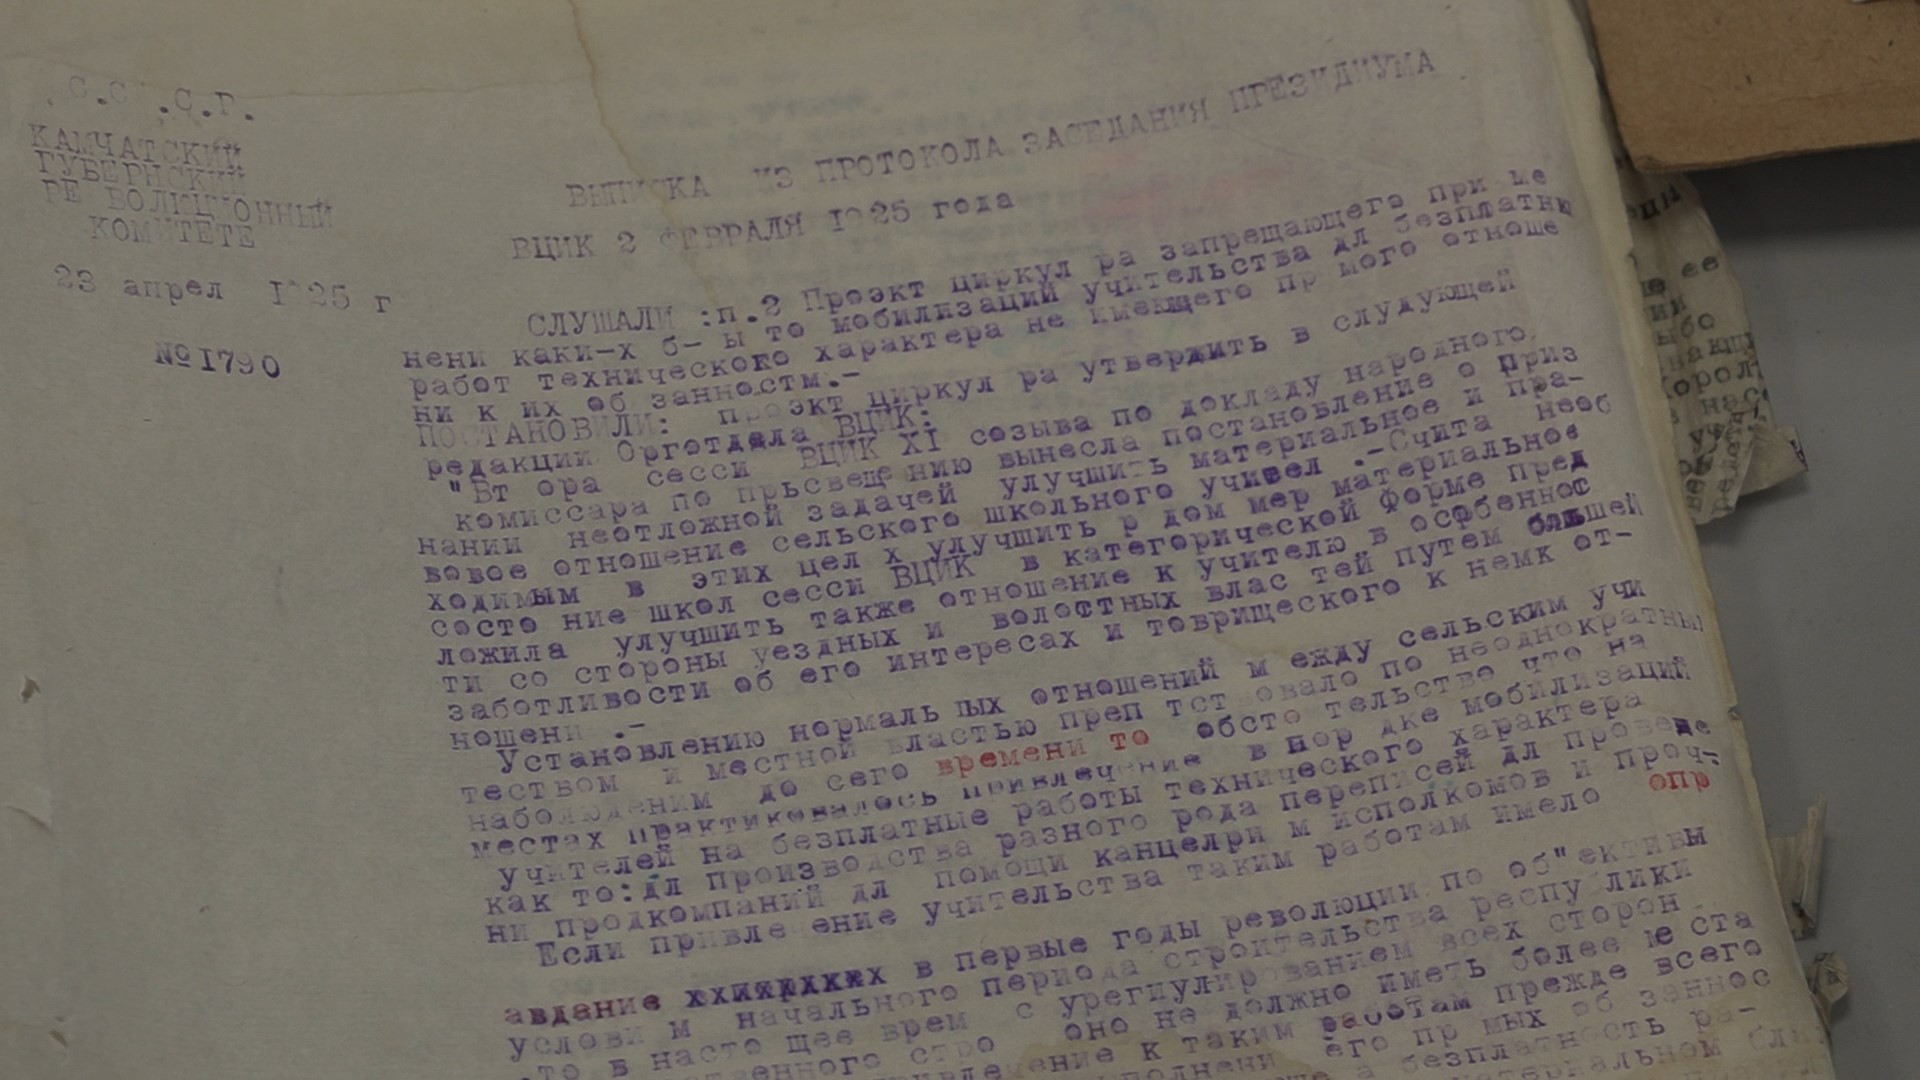 С.С .С.Р.
КАМЧАТСКИЙ
ГУБЕРНСКИЙ
РЕ ВОЛЮЦИОННЫЙ
КОМИТЕТЕ
23 апрел 1925 г
№1790
ВЫПИСКА ИЗ ПРОТОКОЛА ЗАСЕДАНИЯ ПРЕЗИДИУМА
ВЦИК 2 ФЕВРАЛЯ 1925 года
СЛУШАЛИ :п.2 Проэкт циркул ра запрещающего при ме
нени каки-х б- ы то мобилизаций учительства дл безплатны
работ технического характера не имеющего пр мого отноше
ни к их об занностм.-
ПОСТАНОВИЛИ: проэкт циркул ра утвердить в слудующей
редакции Орготдела ВЦИК:
"Вт ора сесси ВЦИК XI созыва по докладу народного
комиссара по прьсвеще нию вынесла постановление о приз
нании неотложной задачей улучшить материальное и пра-
вовое отношение сельского школьного учивел .-Счита необ
ходимым в этих цел х улучшить р дом мер материальное
состо ние школ сесси ВЦИК в категорической форме пред
ложила улучшить также отношение к учителю в осфбенност
ти со стороны уездных и волостных влас тей путем большей
заботливости об его интересах и товрищеского к немк от-
ношени .-
Установлению нормаль ных отношений м ежду сельским учи
теством и местной властью преп тст вовало по неоднократным
наболюдениям до сего времени то обсто тельство что на
местах практиковалось привлечение в пор дке мобилизаций
учителей на безплатные работы технического характера
как то:дл производства разного рода переписей дл проведе
ни продкомпаний дл помощи канцелри м исполкомов и проч-
Если привле ение учительства таким работам имело опр
авдание ххихрхххх в первые годы революции по об"ективы
услови м начального периода строительства респу лики
.то в насто щее врем с урегиулированием всех сторон
ственного стро оно не должно иметь более е ста
ение к таким работам прежде всего
полнени его пр мых об заннос
а безплатность ра-